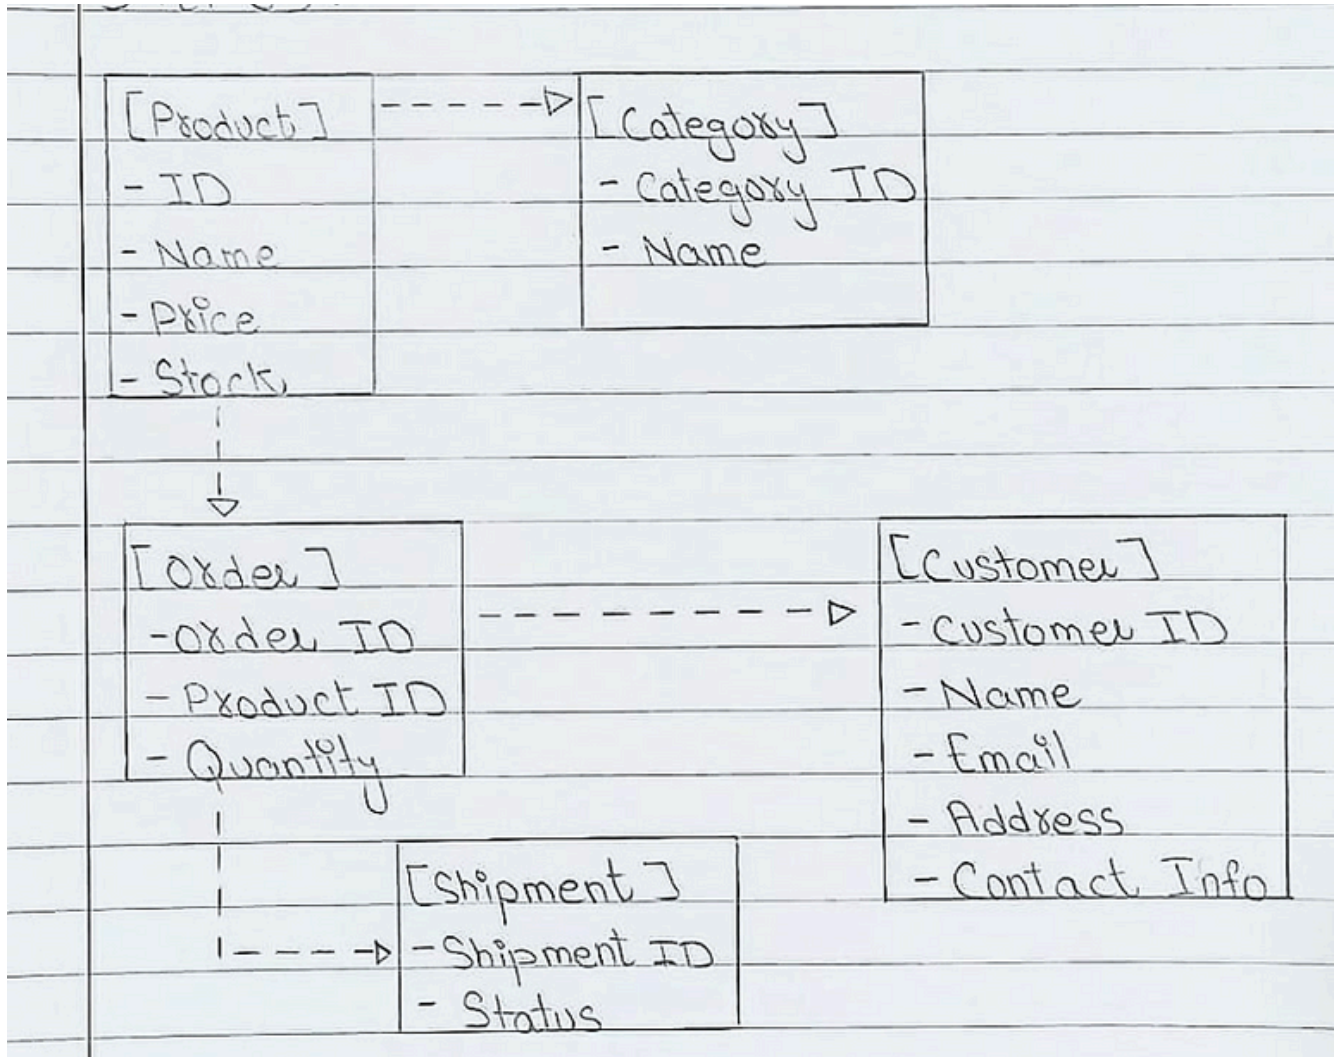 [Product]
- ID
- Name
- Price
- Stock
[Category]
- Category ID
- Name
[Order]
- Order ID
- Product ID
- Quantity
[Customer]
- Customer ID
- Name
- Email
- Address
- Contact Info
[Shipment]
- Shipment ID
- Status